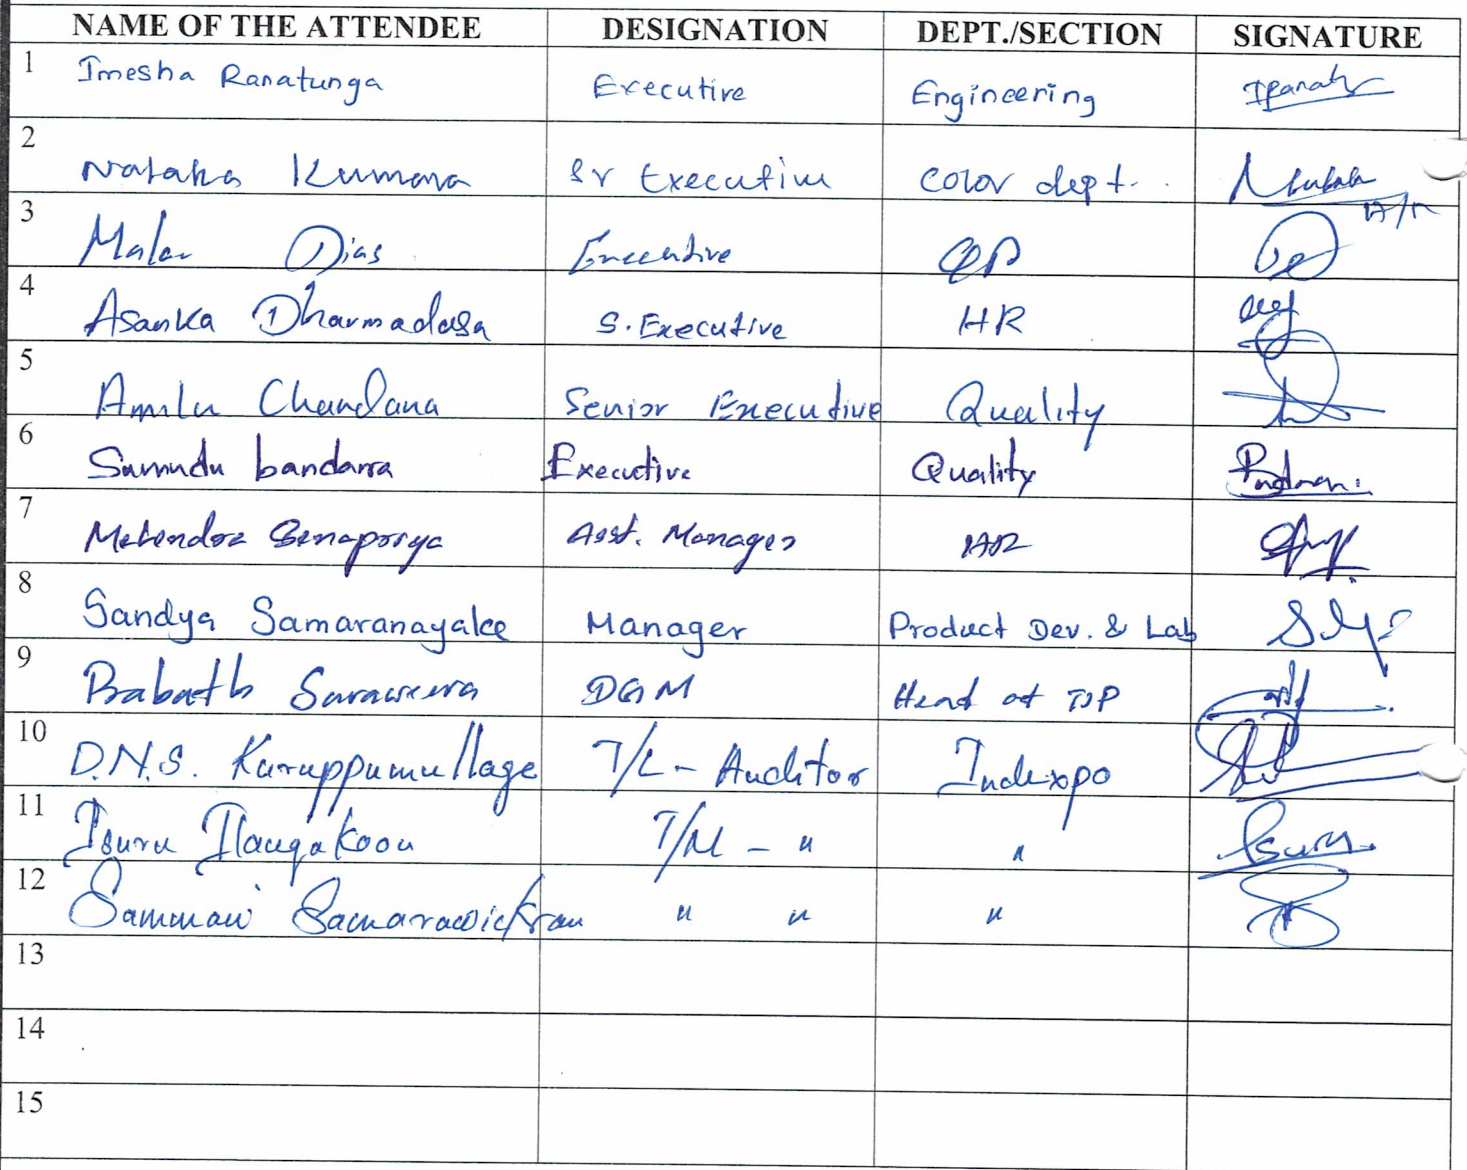 NAME OF THE ATTENDEE DESIGNATION DEPT./SECTION SIGNATURE
1 Imesha Ranatunga Executive Engineering
2 Kumara Sr Executive Color dept.
3 Dias Executive
4 Asanka Dharmadasa S. Executive HR
5 Chandana Senior Executive Quality
6 Samudu bandara Executive Quality
7 Asst. Manager HR
8 Sandya Samaranayake Manager Product Dev. & Lab
9 Prabath DGM Head of
10 D.N.S. Karuppumullage T/L - Auditor Indexpo
11 Isuru Ilangakoon T/M - " " Isuru
12 " " "
13
14
15